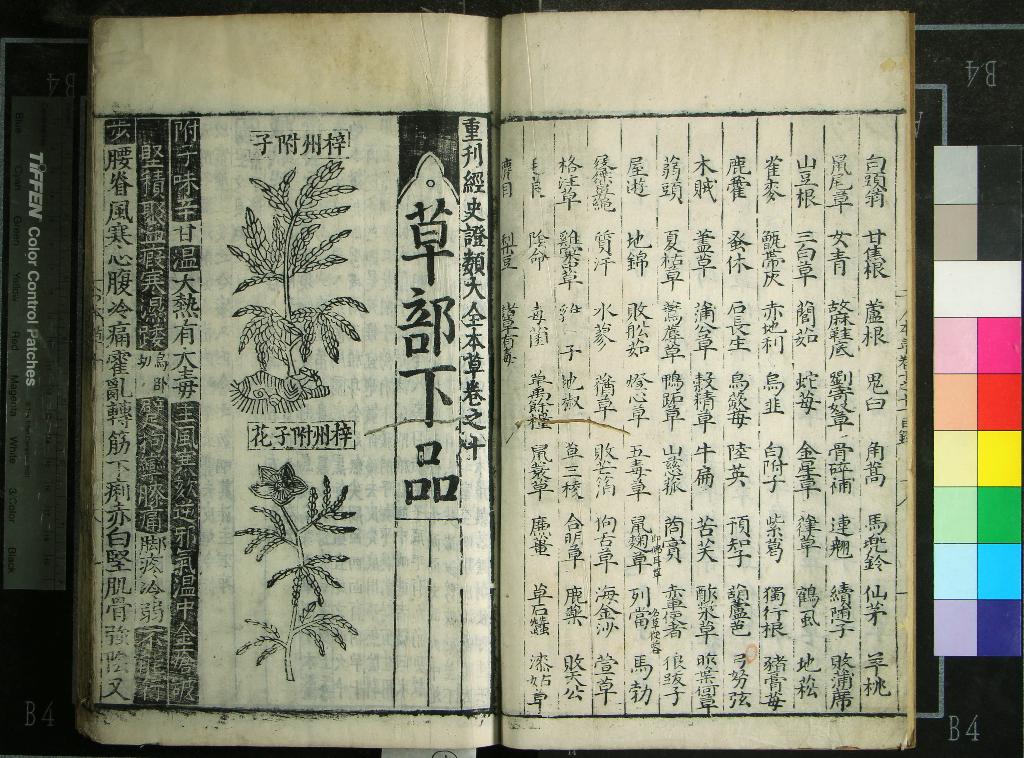 白頭翁 甘焦根 蘆根 鬼臼 角蒿 馬兜鈴 仙茅 羊桃
鼠尾草 女青 故麻鞋底 劉寄奴草 骨碎補 連翹 續隨子 敗蒲席
山豆根 三白草 䕡茹 蛇莓 金星草 葎草 鶴虱 地松
雀麥 甑帶灰 赤地利 烏韭 白附子 紫葛 獨行根 豬膏莓
鹿藿 蚤休 石長生 烏蘞莓 陸英 預知子 葫蘆芭 弓弩弦
木賊 藎草 蒲公草 穀精草 牛扁 苦芙 酢漿草
蒟頭 夏枯草 鴨跖草 山慈菰 茼實 赤車使者 狼跋子
屋遊 地錦 敗船茹 燈心草 五毒草 鼠麴草 列當 馬勃
質汗 水蓼 蕕草 敗芒箔 狗舌草 海金沙 萱草
格注草 雞窠草 雞 子 地椒 草三稜 合明草 鹿藥 敗天公
毛蓑 陰命 毒菌 草禹餘糧 鼠蓑草 廉薑 草石蠶 漆姑草
重刊經史證類大全本草卷之十
草部下品
梓州附子
梓州附子花
附子味辛甘溫大熱有大毒主風寒欬逆邪氣溫中金瘡破
堅積聚血瘕寒濕踒 烏臥切 躄拘攣膝痛腳疼冷弱不能行
步腰脊風寒心腹冷痛霍亂轉筋下痢赤白堅肌骨強陰又
TIFFEN Color Control Patches
Blue Cyan Green Yellow Red Magenta White 3/Color Black
B4
B4
B4
B4